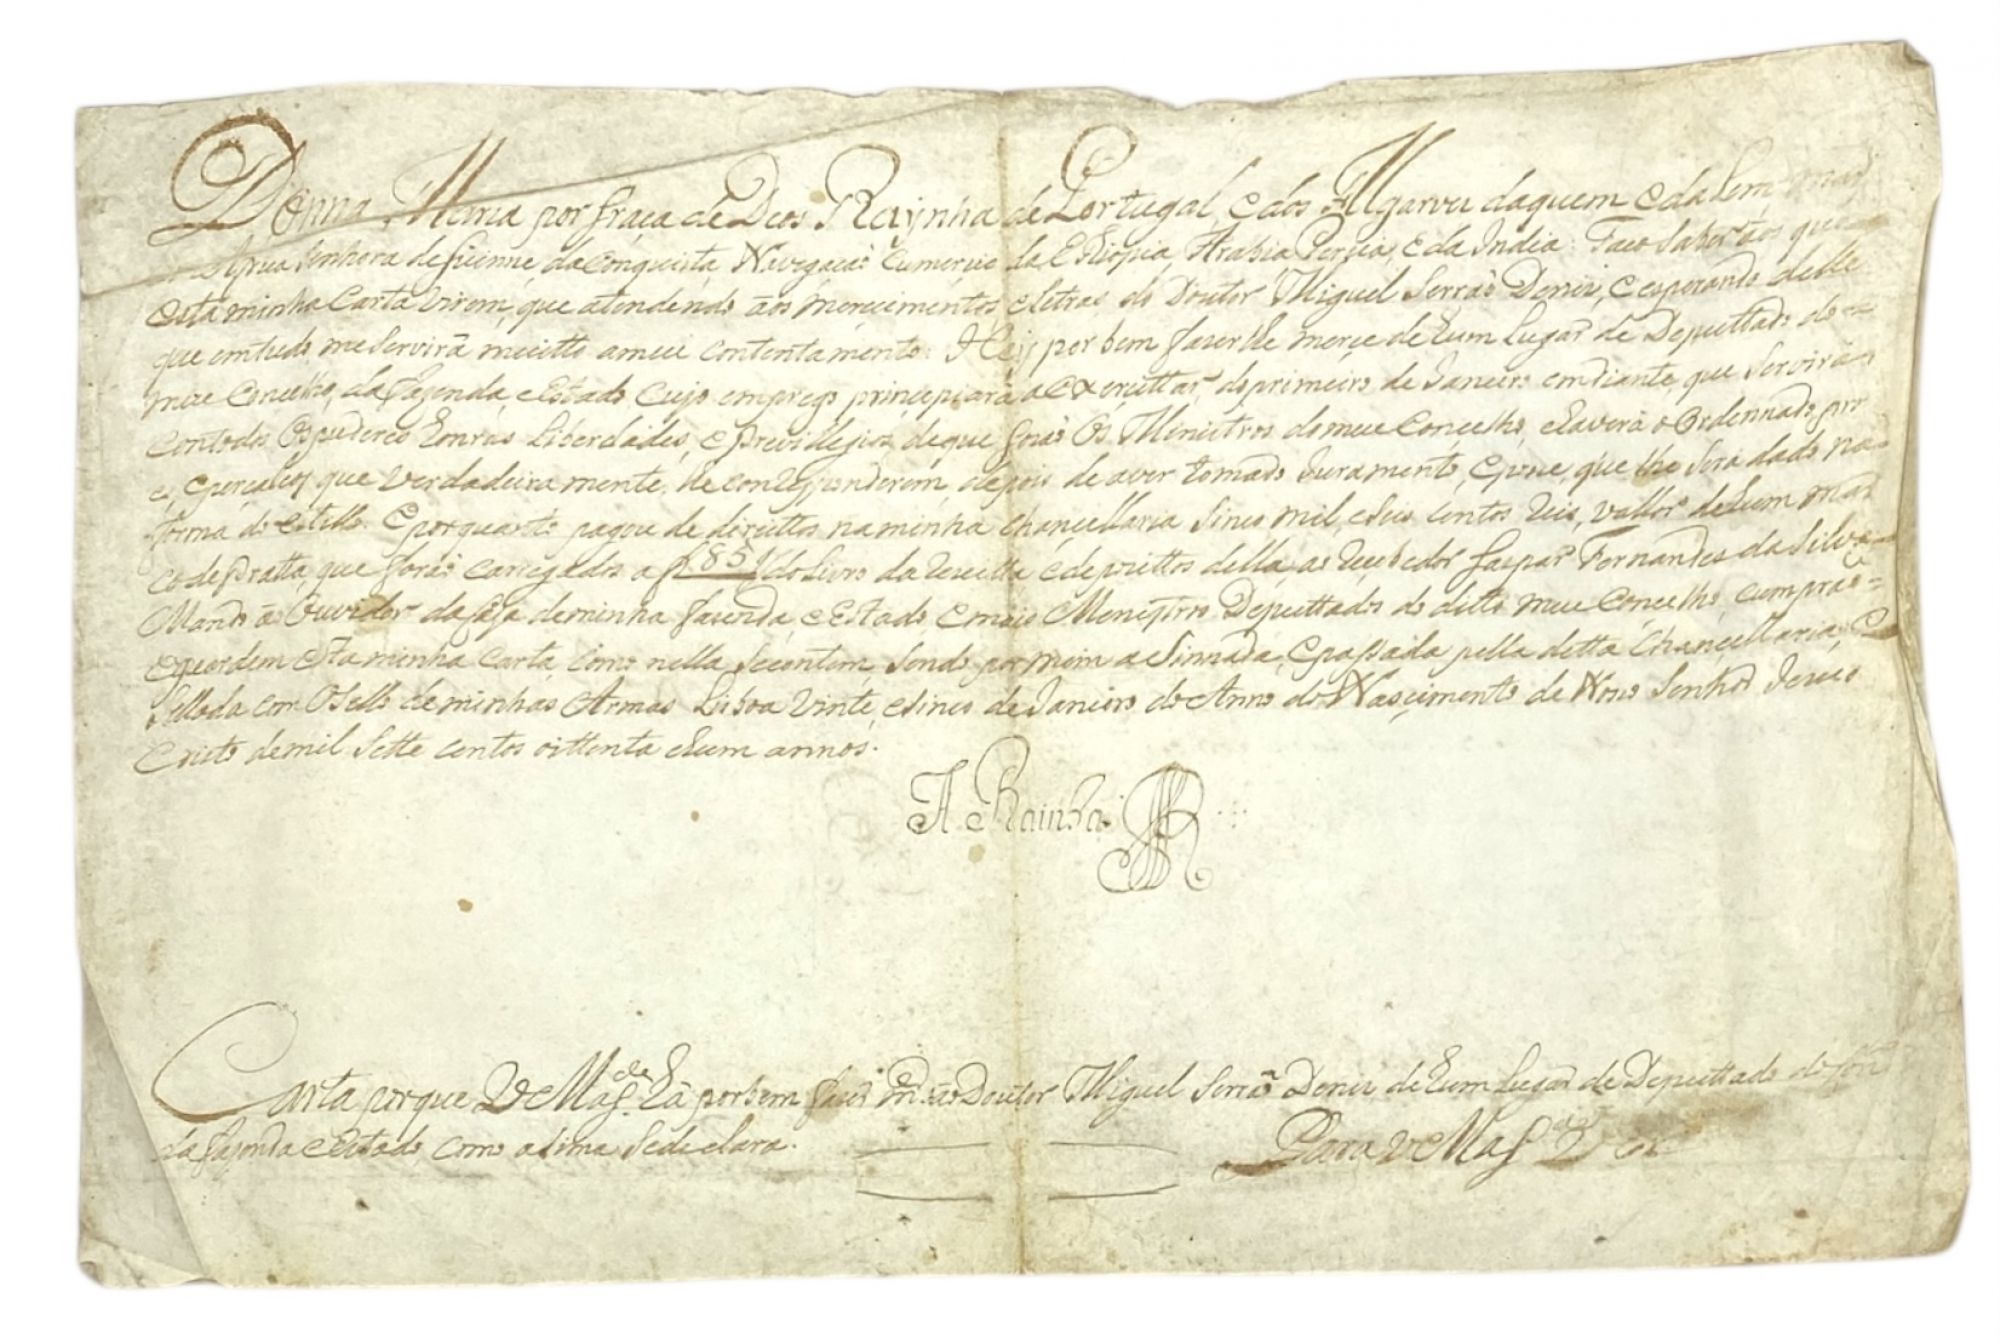 Donna Maria por Graça de Deos Raynha de Portugal, e dos Algarves daquem e da Lem mar
Africa Senhora de Guinne, da Conquista, Navegaçaõ Cumercio da Ethiopia, Arabia Percia, e da India: Faço Saber aos que
esta minha Carta virem, que atendendo aos merecimentos, e letras do Doutor Miguel Serraõ Deniz, e esperando delle
que em tudo me Servirá muitto a meu contentamento: Hey por bem fazerlhe merçe de hum Lugar de Deputtado do
meu Concelho, da Fazenda, e Estado, Cujo emprego principiará a exercittar, do primeiro de Janeiro em diante, que Servirá
com todos Os puderes honras Liberdades, e previlegios, de que gozaõ Os Menistros do meu Concelho, e haverá o Ordennado, pro
es, e percalços que verdadeiramente lhe conrresponderem, depois de aver tomado Juramento, e posse, que lhe Será dado na
forma do estillo. E porquanto pagou de direittos na minha Chançellaria Sinco mil, e Seis Centos Reis, vallor de hum mar
co de Pratta, que foraõ carregados a f 85 V do Livro da Receitta, e depozittos della, ao Recebedor Gaspar Fernandes da Silva
Mando ao Ouvidor da Caza de minha fazenda, e Estado, e mais Menistros Deputtados do ditto meu Concelho, cumpraõ
e guardem esta minha Carta, como nella Secontem, Sendo por mim aSinnada, e paSsada pella ditta Chançellaria, e
Sellada com O Sello de minhas Armas Lisboa vinte, e Sinco de Janeiro do Anno do Nasçimento de Noso Senhor Jesus
Cristo de mil Sette centos oittenta e hum annos.
A Rainha
Carta porque V Mag.de há por bem fazer m.ce ao Doutor Miguel Serraõ Deniz, de hum Lugar de Deputtado do Con
da Fazenda e Estado, como asima Sedeclara.
Para V Mag.de Ver